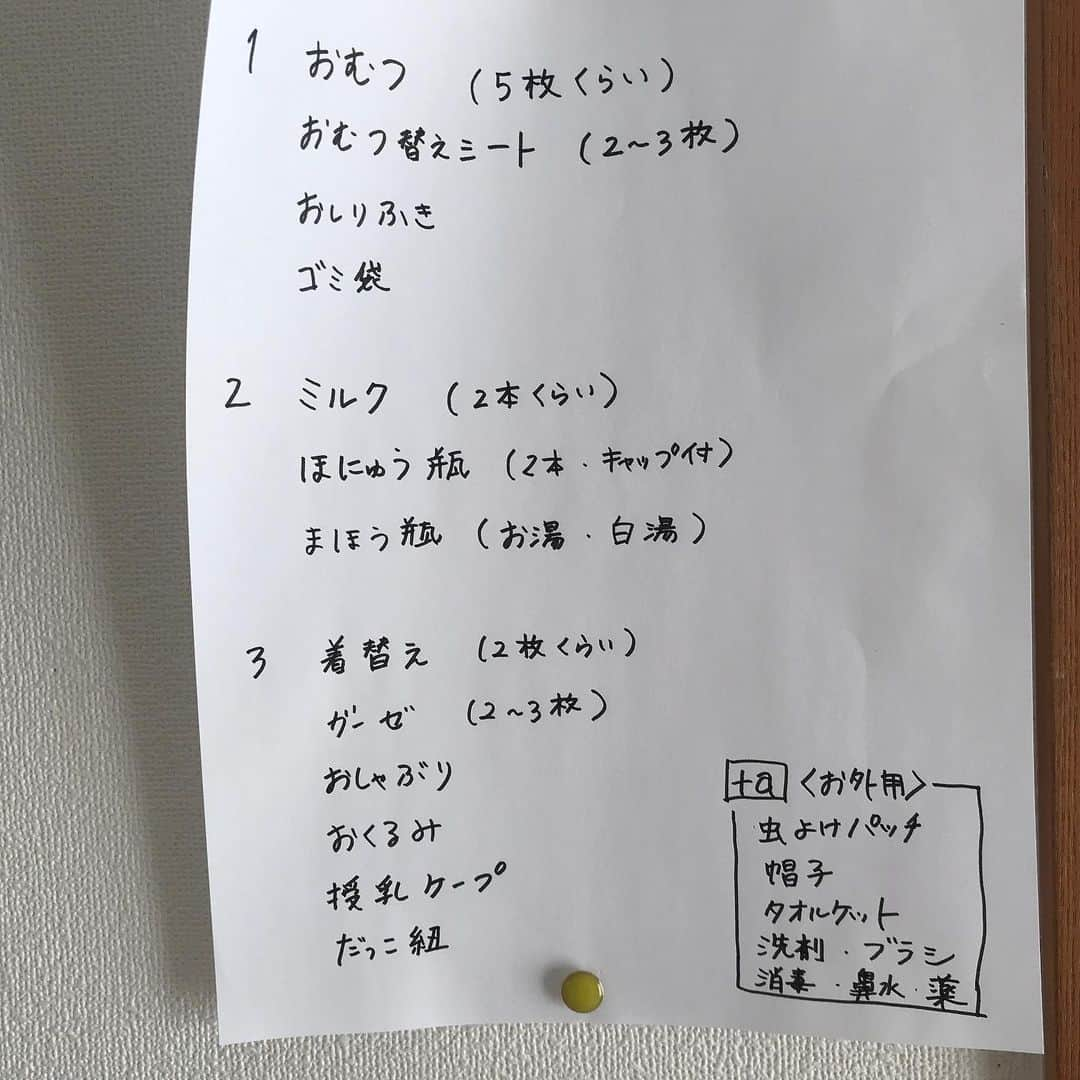 1 おむつ (5枚くらい)
おむつ替えシート (2~3枚)
おしりふき
ゴミ袋
2 ミルク (2本くらい)
ほにゅう瓶 (2本・キャップ付)
まほう瓶 (お湯・白湯)
3 着替え (2枚くらい)
ガーゼ (2~3枚)
おしゃぶり
おくるみ
授乳ケープ
だっこ紐
+a 〈お外用〉
虫よけパッチ
帽子
タオルケット
洗剤・ブラシ
消毒・鼻水・薬